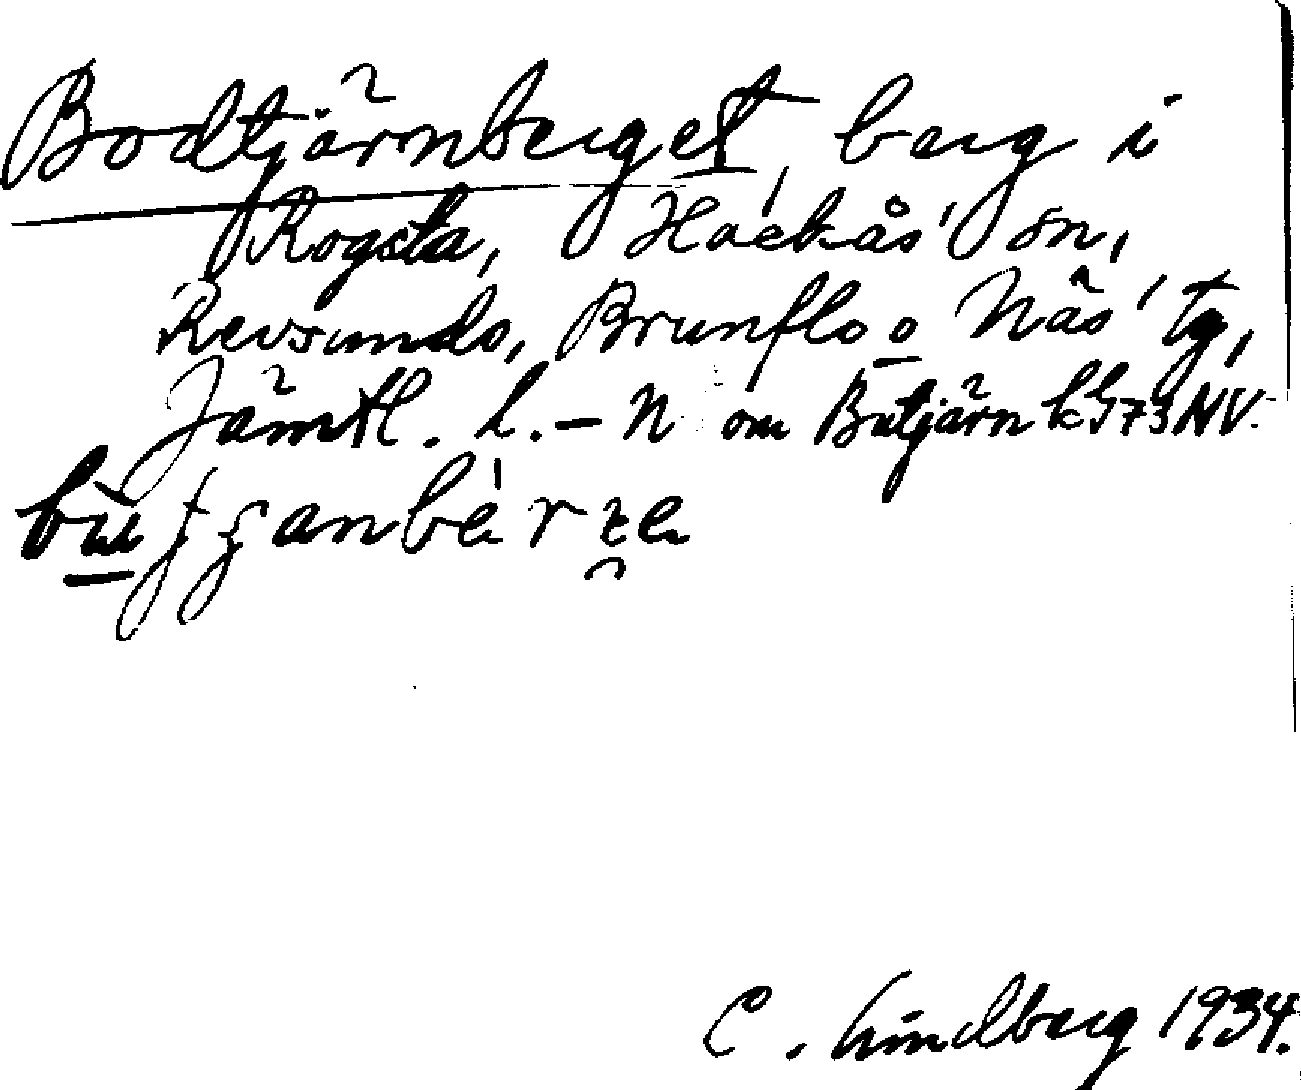 Bodtjärnberget, berg i
Rogsta, Hackås' sn,
Revsunds, Brunflo o Näs' tg,
Jämtl. L. – N om Butjärn kbl 73 NV.
C. Lindberg 1934.